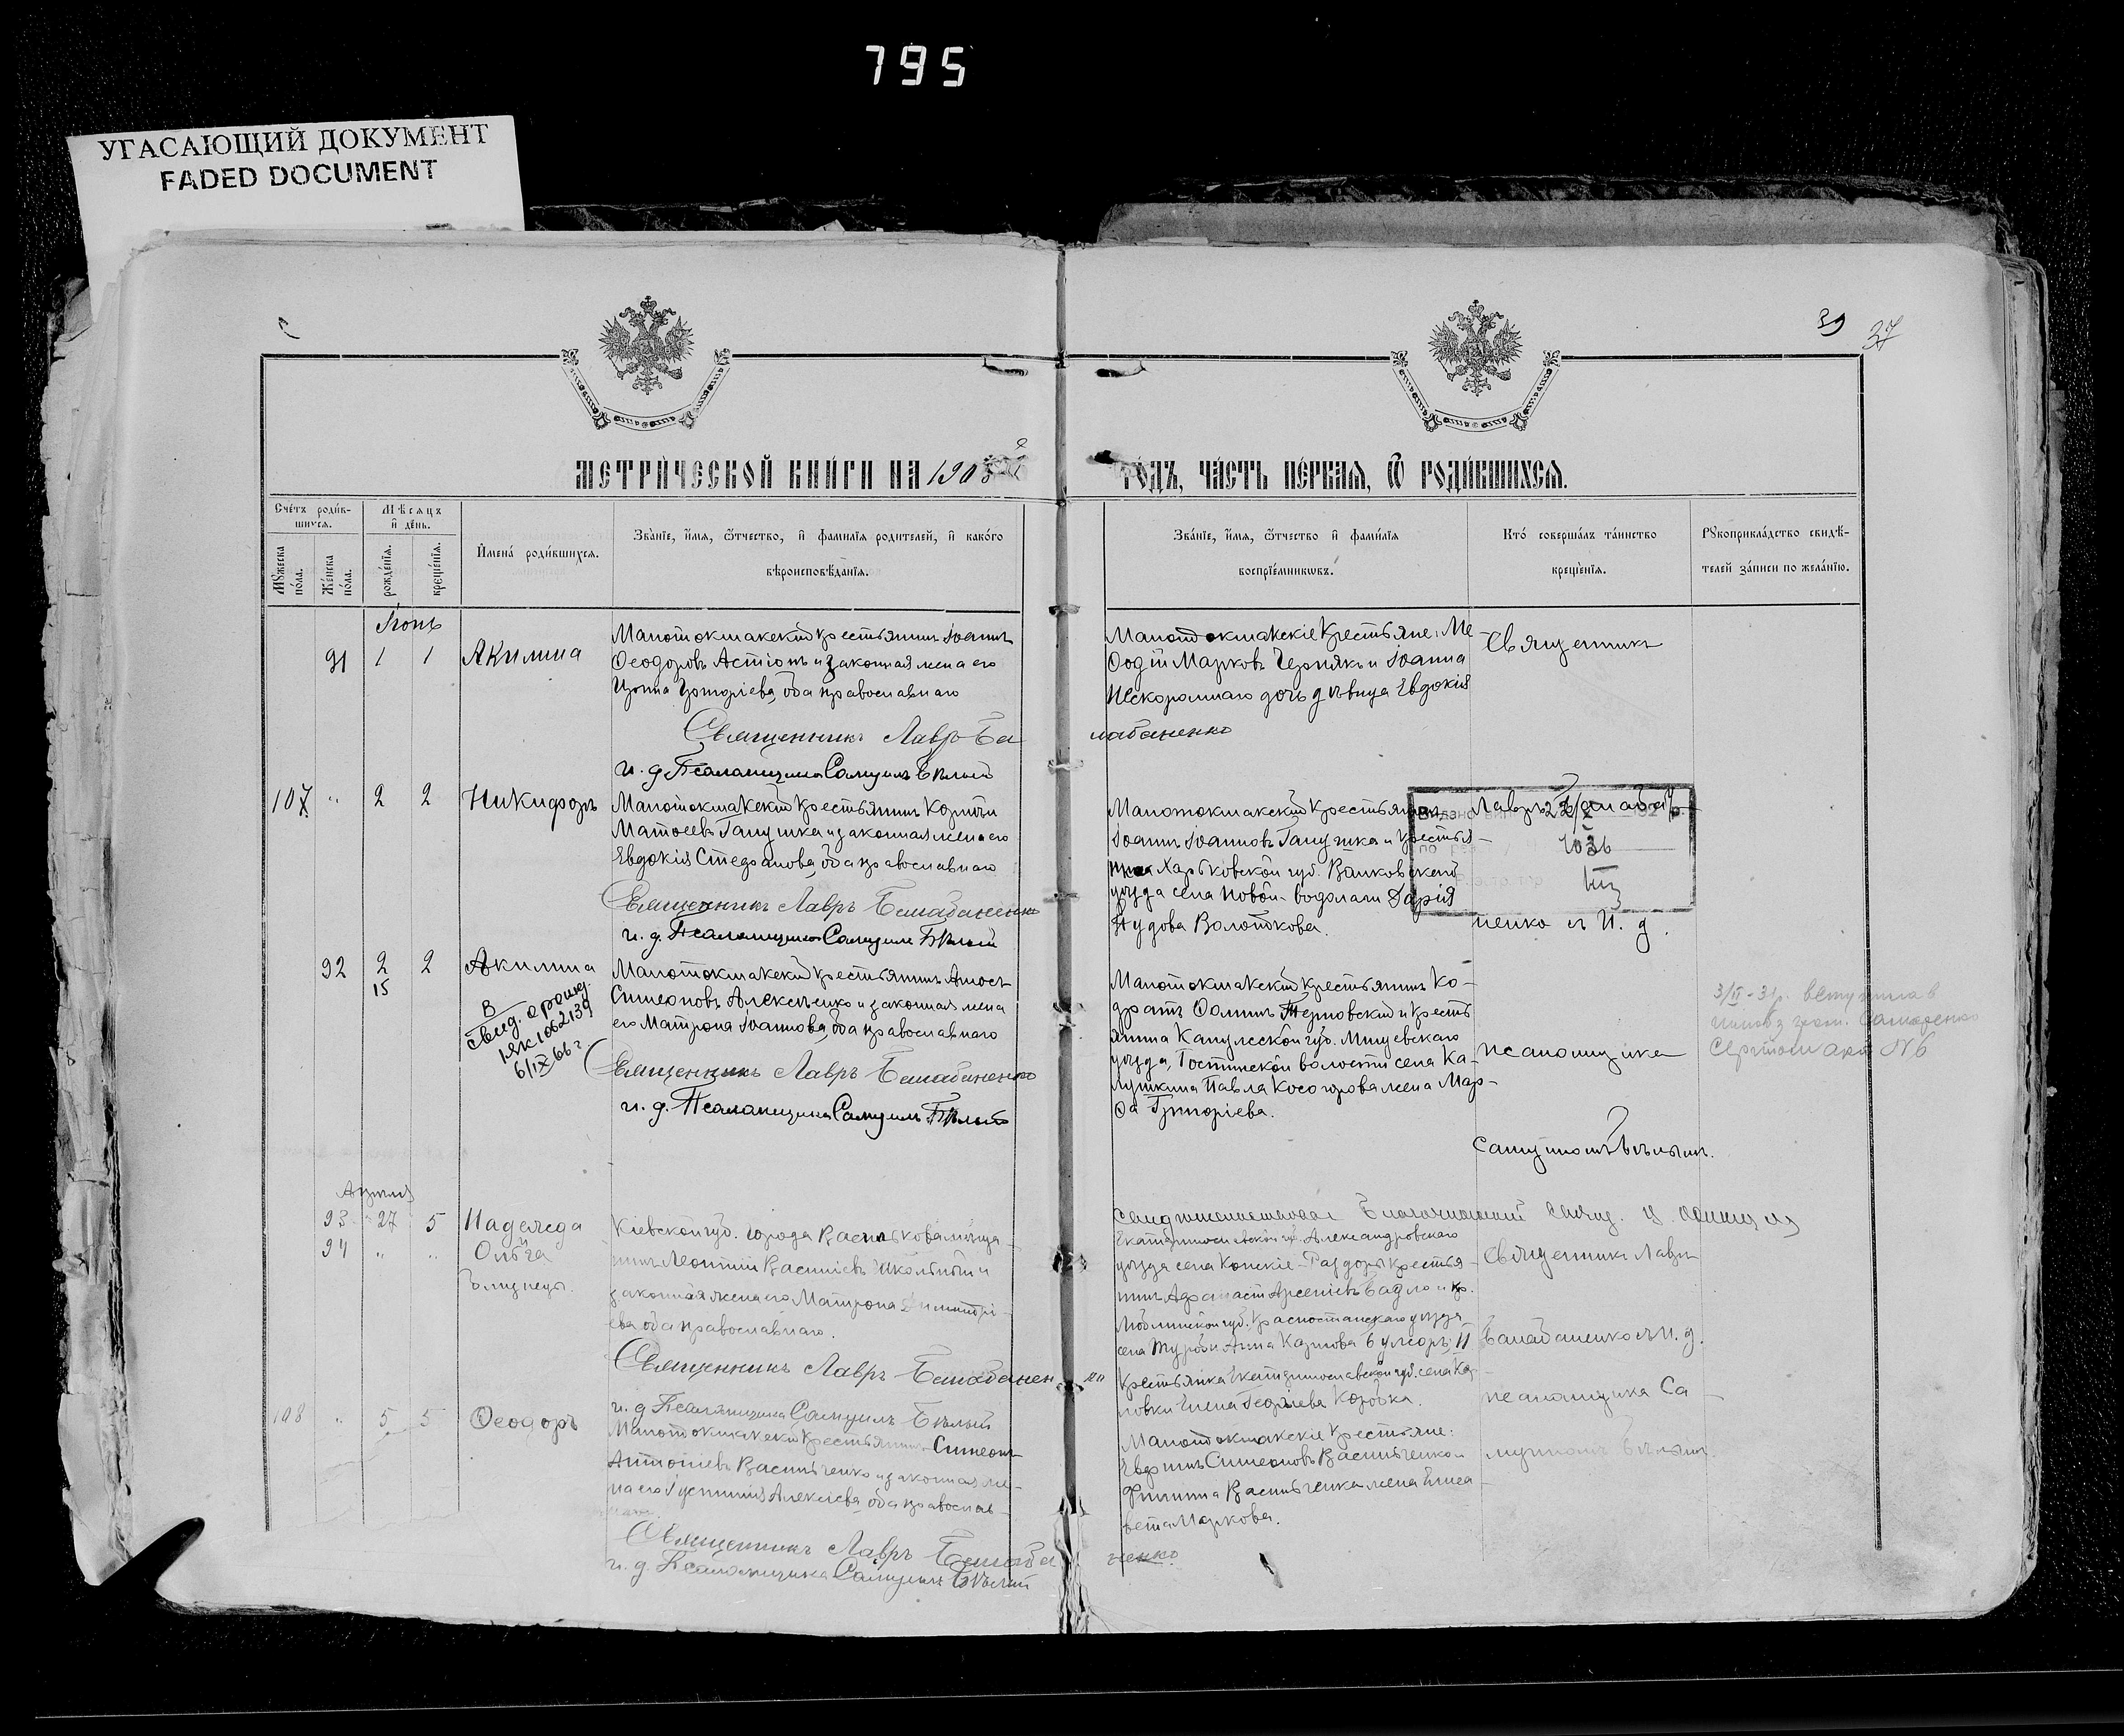 795
УГАСАЮЩИЙ ДОКУМЕНТ
FADED DOCUMENT
39 37
МЕТРИЧЕСКОЙ КНИГИ НА 190
ГОДЪ, ЧАСТЬ ПЕРВАЯ, Ѿ РОДИВШИХСЯ.
Счетъ родив-
шихся.
Мѣсяцъ
и день.
Мужеска пола.
Женска пола.
рожденія.
крещенія.
Имена родившихся.
Званіе, имя, ѿтчество, и фамилія родителей, и какого
вѣроисповѣданія.
Званіе, имя, ѿтчество и фамилія
воспріемниковъ.
Кто совершалъ таинство
крещенія.
Рукоприкладство свидѣ-
телей записи по желанію.
Іюнь
91 1 1 Акилина
Малотокмакскій крестьянинъ Іоаннъ
Ѳеодоровъ и законная жена его
Григоріева, оба православнаго
Священникъ Лавръ Ба
и. д. Псаломщика Самуилъ Бѣлый
Малотокмакскіе крестьяне: Ме
ѳодій Марковъ Чернякъ и Іоанна
Нескоромнаго дочь дѣвица Евдокія
лабаненко
Священникъ
107 " 2 2 Никифоръ
Малотокмакскій крестьянинъ Козьма
Матѳеевъ Галушка и законная жена его
Евдокія Стефанова, оба православнаго
Священникъ Лавръ Балабаненко
и. д. Псаломщика Самуилъ Бѣлый
Малотокмакскій крестьянинъ
Іоаннъ Іоанновъ Галушка и крестья-
нка Харьковской губ. Валковскаго
уѣзда села Новой-Водолаги Дарія
Волоткова.
Лавръ Балаба
1036
ненко съ И. д.
92 2 2 Акилина
15
В
свид. о рожд.
I-ЯК 1062139
6/IX 66 г.
Малотокмакскій крестьянинъ Амосъ
Симеоновъ Алексѣенко и законная жена
его Матрона Іоаннова, оба православнаго
Священникъ Лавръ Балабаненко
и. д. Псаломщика Самуилъ Бѣлый
Малотокмакскій крестьянинъ Ко-
дратъ Ѳоминъ Терновский и кресть
янина Калужской губ.
уѣзда, волости села Ка-
Павла Косогорова жена Мар-
ѳа Григоріева.
псаломщика
Самуиломъ Бѣлымъ.
3/II-31г. вступила в
№ 6
Апрѣля
93 27 5 Надежда
94 " " и Ольга
близнецы.
Кіевской губ. города Василькова мѣща-
нинъ Леонтій Василіевъ Школьный и
законная жена его Матрона Димитрі-
ева оба православнаго.
Священникъ Лавръ Балабанен
ко
и. д. Псаломщика Самуилъ Бѣлый
Благочинный свящ.
Екатеринославской губ. Александровскаго
уѣзда села Конскіе-Раздоры крестья-
нинъ Арсеніевъ и кр.
уѣзда
села Турбои Анна Козмова
Крестьянка Екатеринославской губ. села
Елена Георгіева Коробка.
Священникъ Лавръ
Балабаненко съ И. д.
псаломщика Са-
муиломъ Бѣлымъ
108 " 5 5 Ѳеодоръ
Малотокмакскій крестьянинъ Симеонъ
Антоніевъ Васильченко и законная же-
на его Іустинія Алексіева, оба православ-
Священникъ Лавръ Балаба
ненко
и. д. Псаломщика Самуилъ Бѣлый
Малотокмакскіе крестьяне:
Симеоновъ Васильченко и
Филиппа Васильченка жена Елиса
вета Маркова.